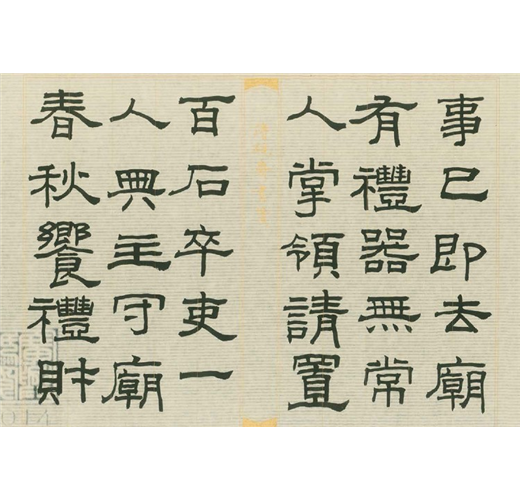 事已即去廟
有禮器無常
人掌領請置
百石卒吏一
人典主守廟
春秋饗禮財